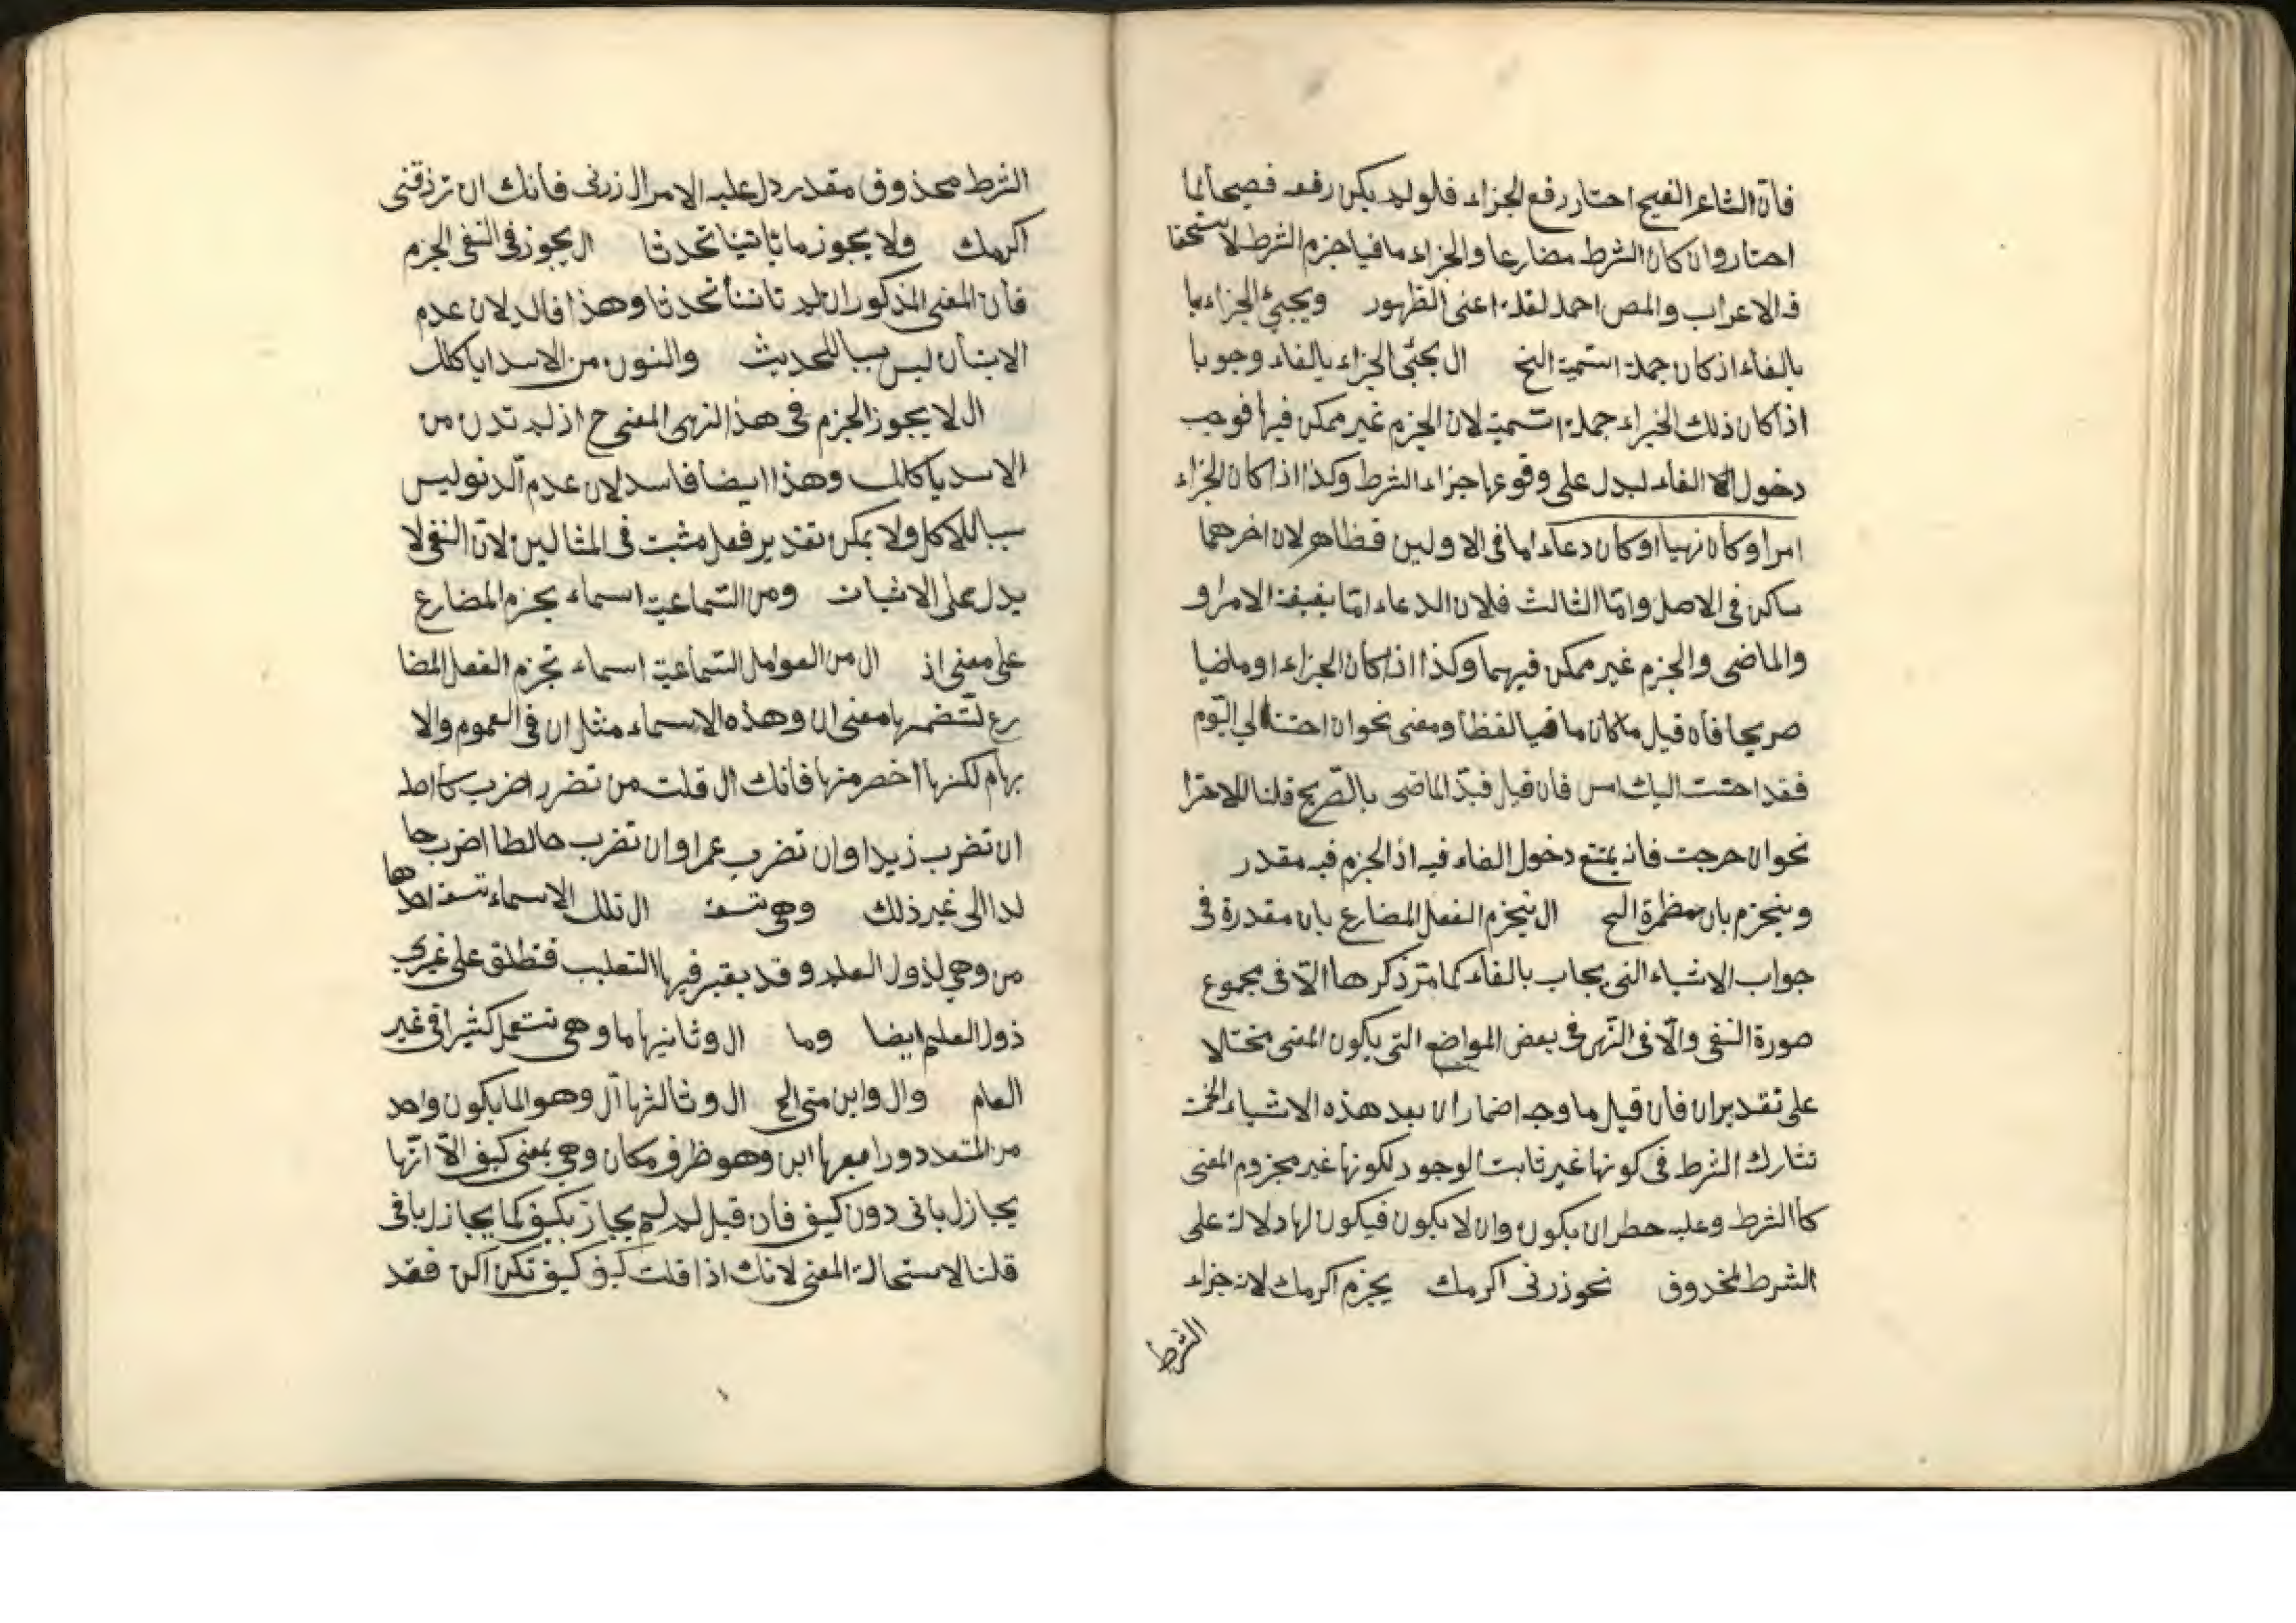 فان الشاعر الفصيح احتار رفع الجزاء فلو لم يكن رفعه فصيحا لما
احتار وان كان الشرط مضارعا والجزاء ما فيا جزم الشرط لا
فـ الاعراب والمص احمد لفلـ اعنى الظهور ويجيئ الجزاء با
بالفاء اذ كان جملة استمية الخ ال يجئى الجزاء بالفاء وجوبا
اذا كان ذلك الخبراء جملة استمية لان الجزم غير ممكن فيها فوجب
دخول الفاء ليدل على وقوعها جزاء الشرط وكذا اذا كان الجزاء
امرا وكان نهيا او كان دعاء اما فى الاولين فظاهر لان اخرهما
ساكن فى الاصل وامّا الثالث فلان الدعاء امّا بغيفة الامر او
والماضى والجزم غير ممكن فيهما وكذا اذا كان الجزاء اوماضيا
صريحا فأن قيل ما كان ما فيا لفظا ومعنى نحوان احتنا الي اليّوم
فقد احتت اليك امس فان قيل قبدّ الماضى بالصّريح قلنا للاحترا
نحوان حرجت فانه يمتنع دخول الفاء فيه اذ الجزم فيه مقدر
وينجزم بان مظمرة الح ال ينجزم الفعل المضارع بان مقدرة فى
جواب الاشياء التى يجاب بالفاء كما مرّ ذكرها الاّ فى مجموع
صورة النفى والّا فى النّهى فى بعض المواضع التى يكون المعنى مختالا
على تقديران فأن قيل ما وجه اضماران بعد هذه الاشياء الخمت
تشارك الشرط فى كونها غير ثابت الوجود لكونها غير مجزوم المعنى
كأ الشرط وعلبه حطران يكون وان لا يكون فيكون لها دلالة على
الشرط المخدوق نحو زرنى اكرمك يجزم اكرمك لانه جزاء
الشرط
الشرط محذوق مقدر دل عليه الامر ال زرنى فأنك ان ترذقنى
اكرمك ولا يجوز ما تأتينا تحدثا ال يجوز فى النفى الجزم
فأن المعنى المذكوران لم تأتنأ تحدثا وهذا فالد لان عدم
الاتيأن ليس سببا للحديث والنون من الاسد اياكلك
ال لا يجوز الجزم فى هذ النهى المعنى ح اذ لم تدن من
الاسد ياكالك وهذا ايضا فاسد لان عدم الّدنو ليس
سببا للاكل ولا يمكن تقدير فعل مثبت فى المثالين لانّ النفى لا
يدل على الاثبات ومن السّماعية اسماء يجزم المضارع
على معنى اذ ال من العوامل السّماعية اسماء تجزم الفعل المضا
رع لتّضمنها معنى ان وهذه الاسماء مثل ان فى العموم والا
بهام لكنها اخصر منها فأنك ال قلت من تضرر اضرب
ان تضرب زيدا وان تضرب عمرا وان تضرب حالطا اضرب حا
لدا الى غير ذلك وهى تسعة ال تلك الاسماء تسعة احدها
من وهى لذول العلم وقد يقبر فيها التعليب فتطلق على غيرى
ذول العلم ايضا وما ال وثانيها ما وهى تستعمل كثيرا فى غير
العام وال واين متى الح ال وثالثها ال وهو لما يكون واحد
من المتعدد ورابعها اين وهو ظرف مكان وهى بمعنى كيف الاّ انّها
يجازل بانى دون كيف فان قيل لم لم يجاز بكيف كما يجازل باقى
قلنا لاستحالة المعنى لانك اذا قلت كيف كيف تكن اكن فقد